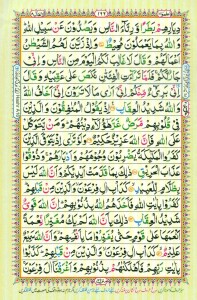 دِيَارِهِمْ بَطَرًا وَّرِئَآءَ النَّاسِ وَيَصُدُّوْنَ عَنْ سَبِيْلِ اللّٰهِ
وَاللّٰهُ بِمَا يَعْمَلُوْنَ مُحِيْطٌ وَاِذْ زَيَّنَ لَهُمُ الشَّيْطٰنُ
اَعْمَالَهُمْ وَقَالَ لَا غَالِبَ لَكُمُ الْيَوْمَ مِنَ النَّاسِ وَاِنِّيْ
جَارٌ لَّكُمْ فَلَمَّا تَرَآءَتِ الْفِئَتٰنِ نَكَصَ عَلٰى عَقِبَيْهِ وَقَالَ
اِنِّيْ بَرِيْٓءٌ مِّنْكُمْ اِنِّيْٓ اَرٰى مَا لَا تَرَوْنَ اِنِّيْٓ اَخَافُ اللّٰهَ
وَاللّٰهُ شَدِيْدُ الْعِقَابِ اِذْ يَقُوْلُ الْمُنٰفِقُوْنَ وَالَّذِيْنَ
فِيْ قُلُوْبِهِمْ مَّرَضٌ غَرَّ هٰٓؤُلَآءِ دِيْنُهُمْ وَمَنْ يَّتَوَكَّلْ
عَلَى اللّٰهِ فَاِنَّ اللّٰهَ عَزِيْزٌ حَكِيْمٌ وَلَوْ تَرٰٓى اِذْ يَتَوَفَّى
الَّذِيْنَ كَفَرُوا الْمَلٰٓئِكَةُ يَضْرِبُوْنَ وُجُوْهَهُمْ وَاَدْبَارَهُمْ وَذُوْقُوْا
عَذَابَ الْحَرِيْقِ ذٰلِكَ بِمَا قَدَّمَتْ اَيْدِيْكُمْ وَاَنَّ اللّٰهَ لَيْسَ
بِظَلَّامٍ لِّلْعَبِيْدِ كَدَاْبِ اٰلِ فِرْعَوْنَ وَالَّذِيْنَ مِنْ قَبْلِهِمْ
كَفَرُوْا بِاٰيٰتِ اللّٰهِ فَاَخَذَهُمُ اللّٰهُ بِذُنُوْبِهِمْ اِنَّ اللّٰهَ قَوِيٌّ
شَدِيْدُ الْعِقَابِ ذٰلِكَ بِاَنَّ اللّٰهَ لَمْ يَكُ مُغَيِّرًا نِّعْمَةً
اَنْعَمَهَا عَلٰى قَوْمٍ حَتّٰى يُغَيِّرُوْا مَا بِاَنْفُسِهِمْ وَاَنَّ اللّٰهَ سَمِيْعٌ
عَلِيْمٌ كَدَاْبِ اٰلِ فِرْعَوْنَ وَالَّذِيْنَ مِنْ قَبْلِهِمْ كَذَّبُوْا
بِاٰيٰتِ رَبِّهِمْ فَاَهْلَكْنٰهُمْ بِذُنُوْبِهِمْ وَاَغْرَقْنَآ اٰلَ فِرْعَوْنَ